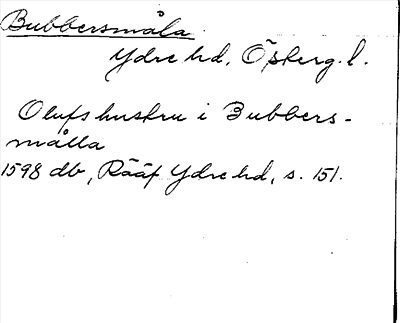 Bubbersmåla
Ydre hd, Österg. l.
Olufs hustru i Bubbers-
målla
1598 db, Rääf Ydre hd, s. 151.